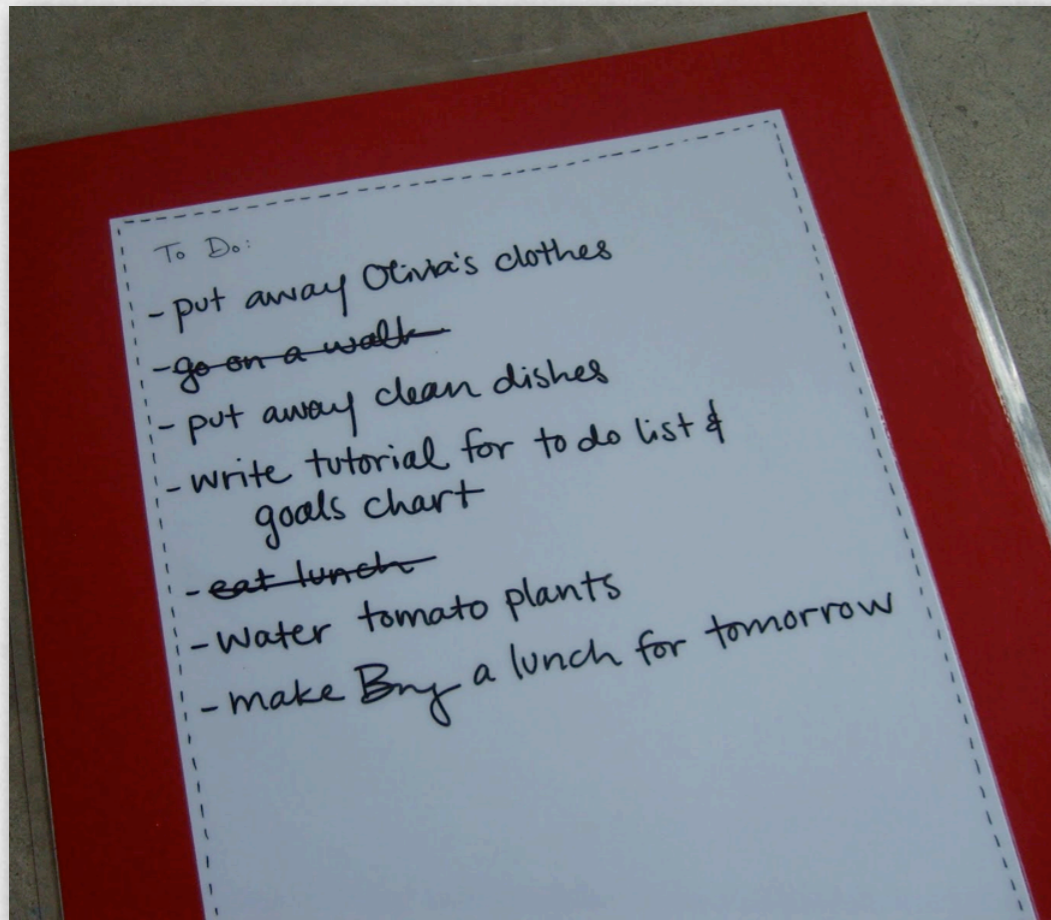 To Do:
- put away Olivia's clothes
- go on a walk
- put away clean dishes
- write tutorial for to do list &
goals chart
- eat lunch
- water tomato plants
- make a lunch for tomorrow